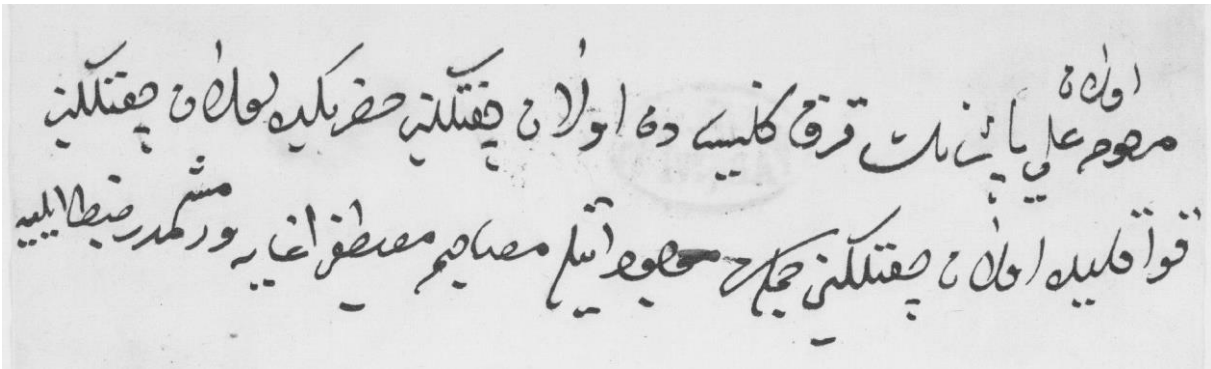 اولان
مرحوم علی پاشانك قرق كلیسه ده اولان چفتلكین حضربكده اولان چفتلكین
قواقلیده اولان چفتلكین جمله موجوداتیله مصاحبم مصطفی اغایه ورمشمدر ضبط ایلیه